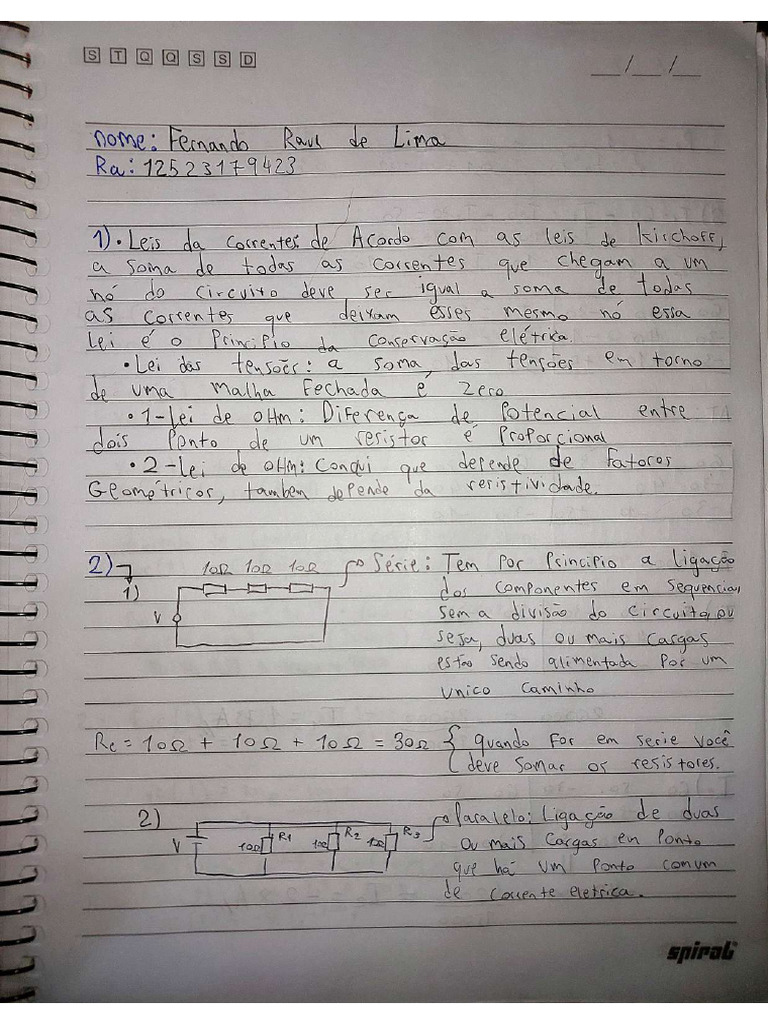 S T Q Q S S D
__/__/__
nome: Fernando Raul de Lima
Ra: 12523179423
1) • Leis da correntes de Acordo com as leis de Kirchoff,
a soma de todas as correntes que chegam a um
nó do circuito deve ser igual a soma de todas
as correntes que deixam esses mesmo nó essa
Lei é o Principio da conservação elétrica.
• Lei das tensões: a soma das tensões em torno
de uma malha fechada é zero
• 1-Lei de OHm: Diferença de Potencial entre
dois Ponto de um resistor é Proporcional
• 2-Lei de OHm: Conclui que depende de Fatores
Geométricos, tambem depende da resistividade.
2)
1)
10Ω 10Ω 10Ω
V
Série: Tem Por Principio a Ligação
dos componentes em sequencia,
sem a divisão do circuito, ou
seja, duas ou mais cargas
estão sendo alimentada Por um
unico caminho
Re = 10Ω + 10Ω + 10Ω = 30Ω { quando For em serie você
deve somar os resistores.
2)
V
10Ω R1 10Ω R2 10Ω R3
Paralelo: Ligação de duas
ou mais cargas em Ponto
que há um Ponto comum
de corrente eletrica.
spiral